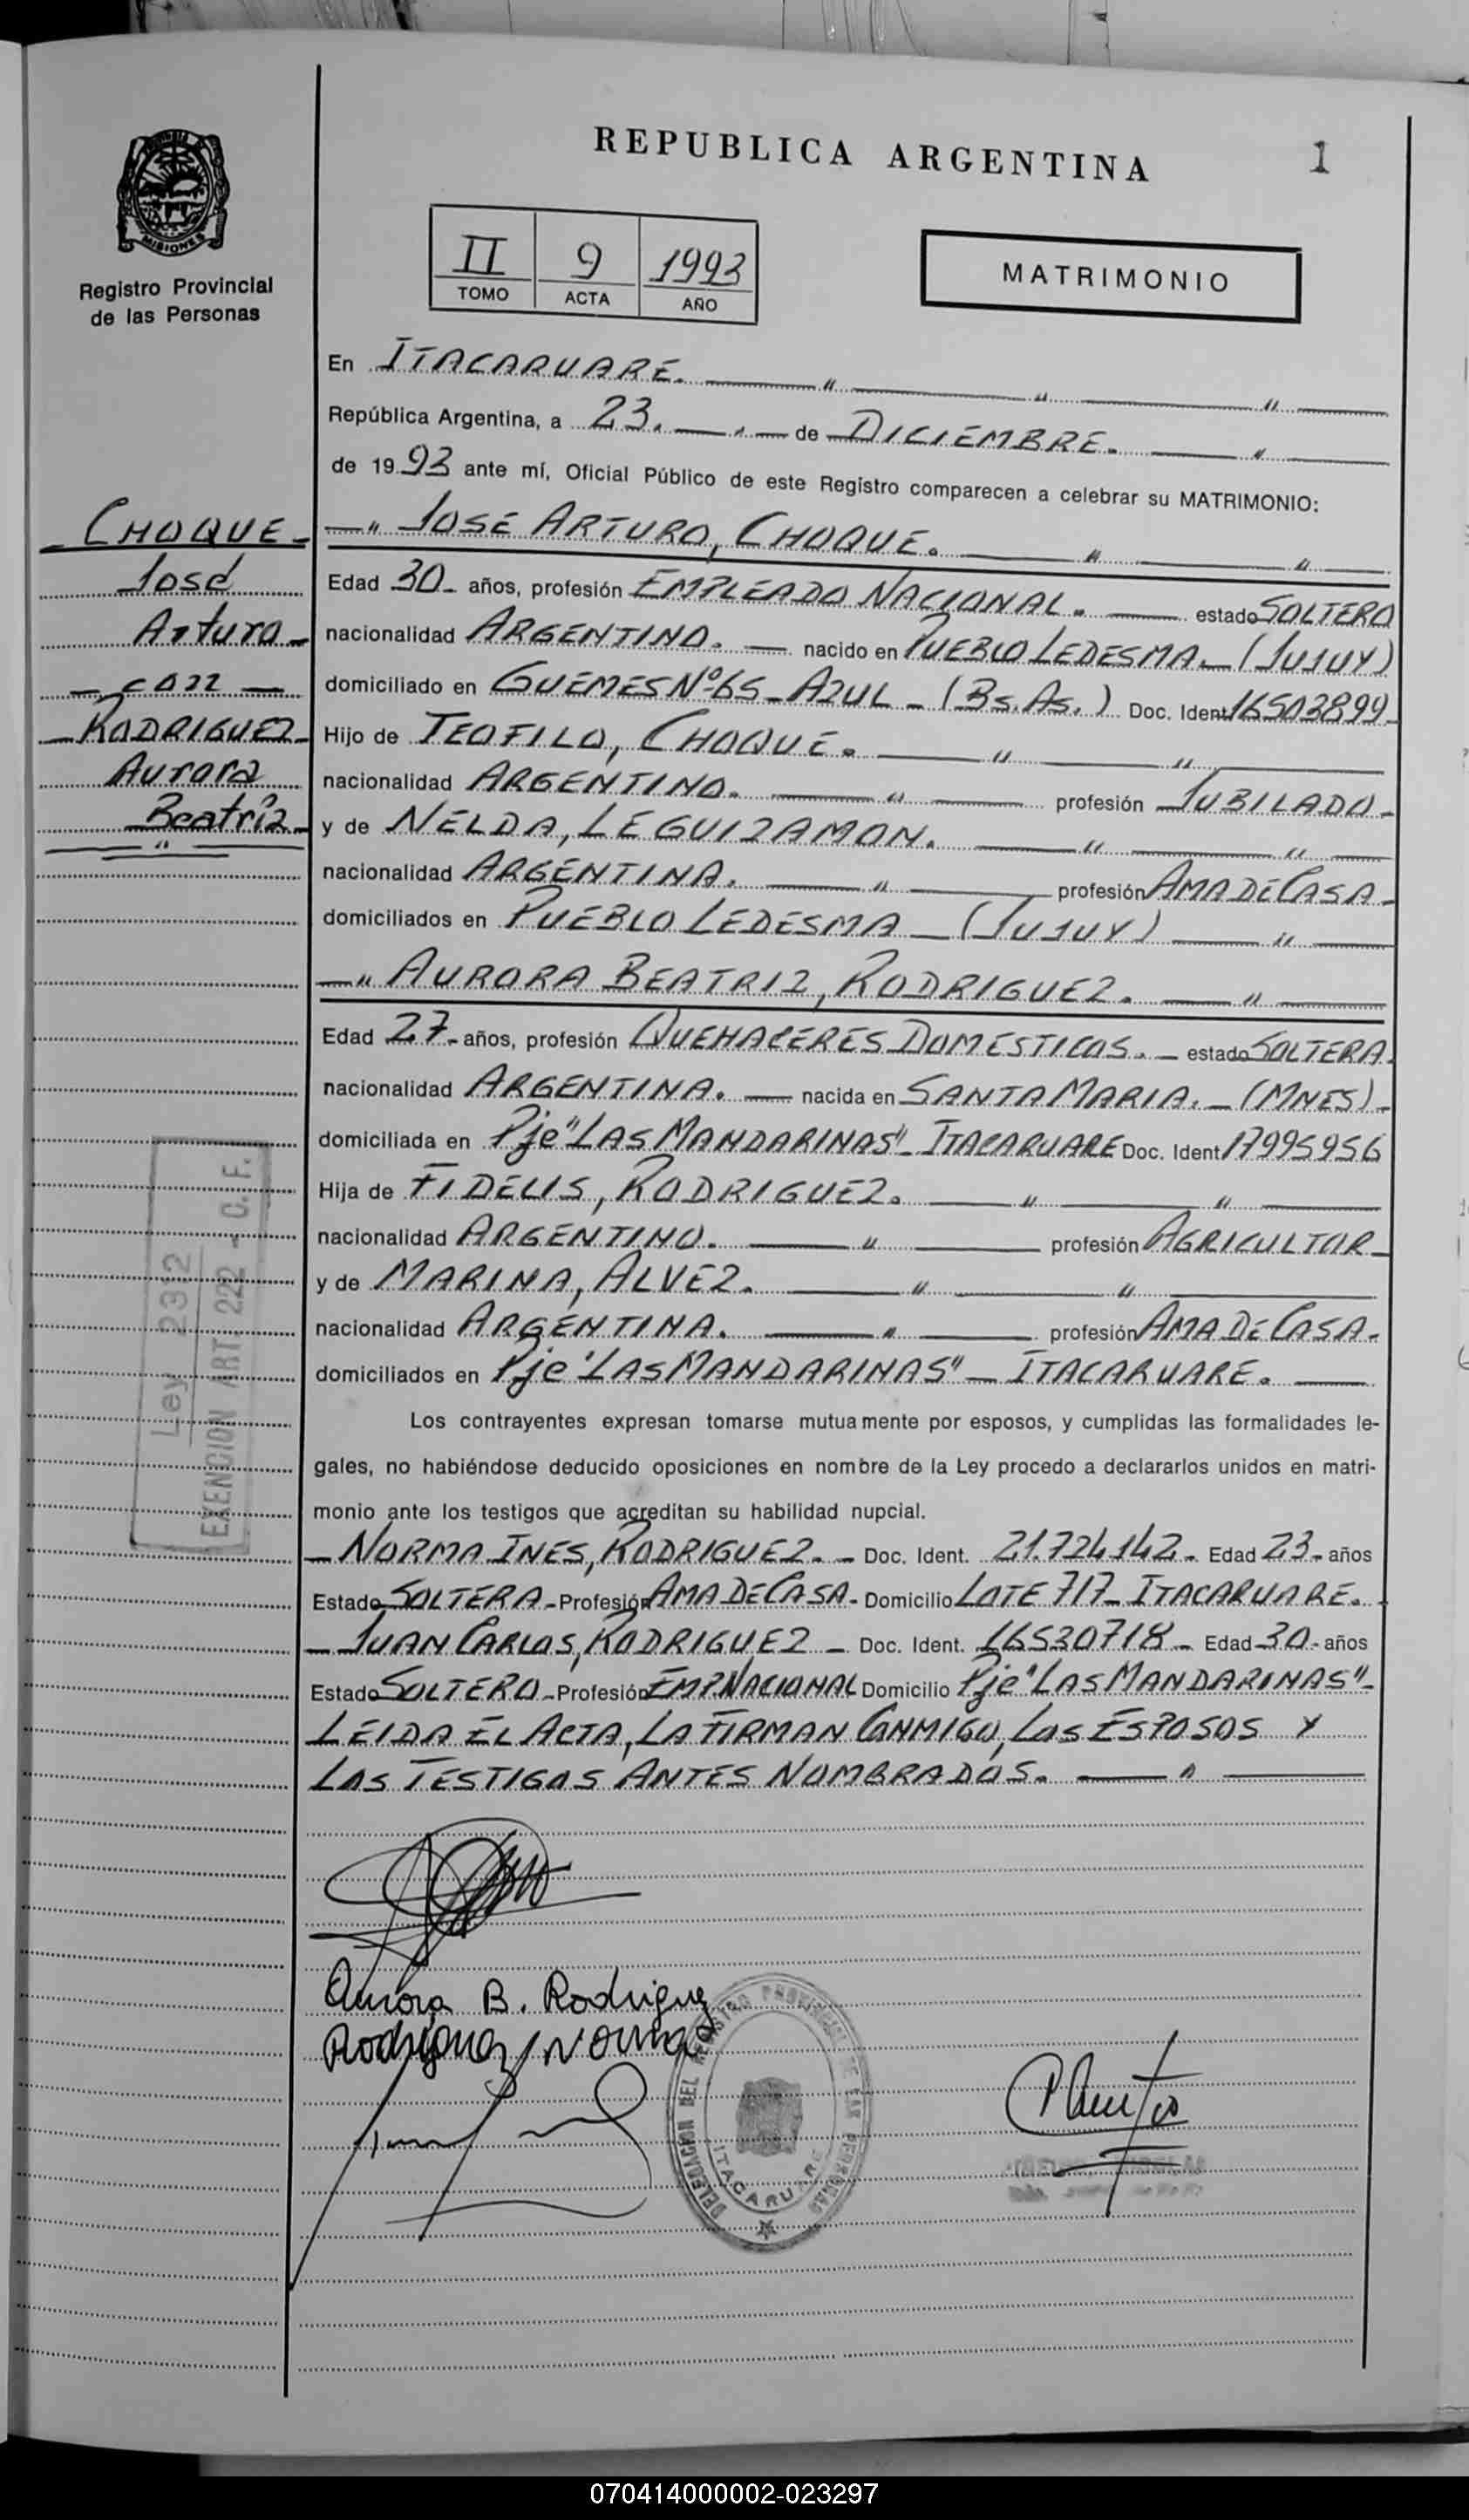 REPUBLICA ARGENTINA
1
MISIONES
Registro Provincial
de las Personas
II 9 1993
TOMO ACTA AÑO
MATRIMONIO
En ITACARUARE. — " — " — " —
República Argentina, a 23. — . — de — DICIEMBRE. — " —
de 1993 ante mí, Oficial Público de este Registro comparecen a celebrar su MATRIMONIO:
CHOQUE
José
Arturo
— con —
RODRIGUEZ
Aurora
Beatríz
— " JOSÉ ARTURO, CHOQUE. — " — "
Edad 30 - años, profesión EMPLEADO NACIONAL. — estado SOLTERO
nacionalidad ARGENTINO. — nacido en PUEBLO LEDESMA. — (JUJUY)
domiciliado en GUEMES Nº 65 - AZUL - (Bs. As.) Doc. Ident 16503899
Hijo de TEOFILO, CHOQUE. — " — " —
nacionalidad ARGENTINO. — " — profesión JUBILADO -
y de NELDA, LEGUIZAMON. — " — " —
nacionalidad ARGENTINA. — " — profesión AMA DE CASA -
domiciliados en PUEBLO LEDESMA — (JUJUY) — " —
— " AURORA BEATRIZ, RODRIGUEZ. — " —
Edad 27 - años, profesión QUEHACERES DOMESTICOS. — estado SOLTERA.
nacionalidad ARGENTINA. — nacida en SANTA MARIA. — (MNES) -
domiciliada en Pje "LAS MANDARINAS" - ITACARUARE Doc. Ident 17995956
Hija de FIDELIS, RODRIGUEZ. — " — " —
nacionalidad ARGENTINO. — " — profesión AGRICULTOR -
y de MARINA, ALVEZ. — " — " —
nacionalidad ARGENTINA. — " — profesión AMA DE CASA -
domiciliados en Pje "LAS MANDARINAS" — ITACARUARE. —
Ley 2312
EXENCION ART. 222 - C. F.
Los contrayentes expresan tomarse mutuamente por esposos, y cumplidas las formalidades le-
gales, no habiéndose deducido oposiciones en nombre de la Ley procedo a declararlos unidos en matri-
monio ante los testigos que acreditan su habilidad nupcial.
— NORMA INES, RODRIGUEZ. — Doc. Ident. 21.724.142 - Edad 23 - años
Estado SOLTERA - Profesión AMA DE CASA - Domicilio LOTE 717 - ITACARUARE.
— JUAN CARLOS, RODRIGUEZ — Doc. Ident. 16530718 - Edad 30 - años
Estado SOLTERO - Profesión EMP. NACIONAL Domicilio Pje "LAS MANDARINAS" -
LEIDA EL ACTA, LA FIRMAN CONMIGO, LOS ESPOSOS Y
LOS TESTIGOS ANTES NOMBRADOS. — " —
Aurora B. Rodriguez
Rodriguez Norma
DELEGACION DEL REGISTRO PROVINCIAL DE LAS PERSONAS
ITACARUARE
070414000002-023297